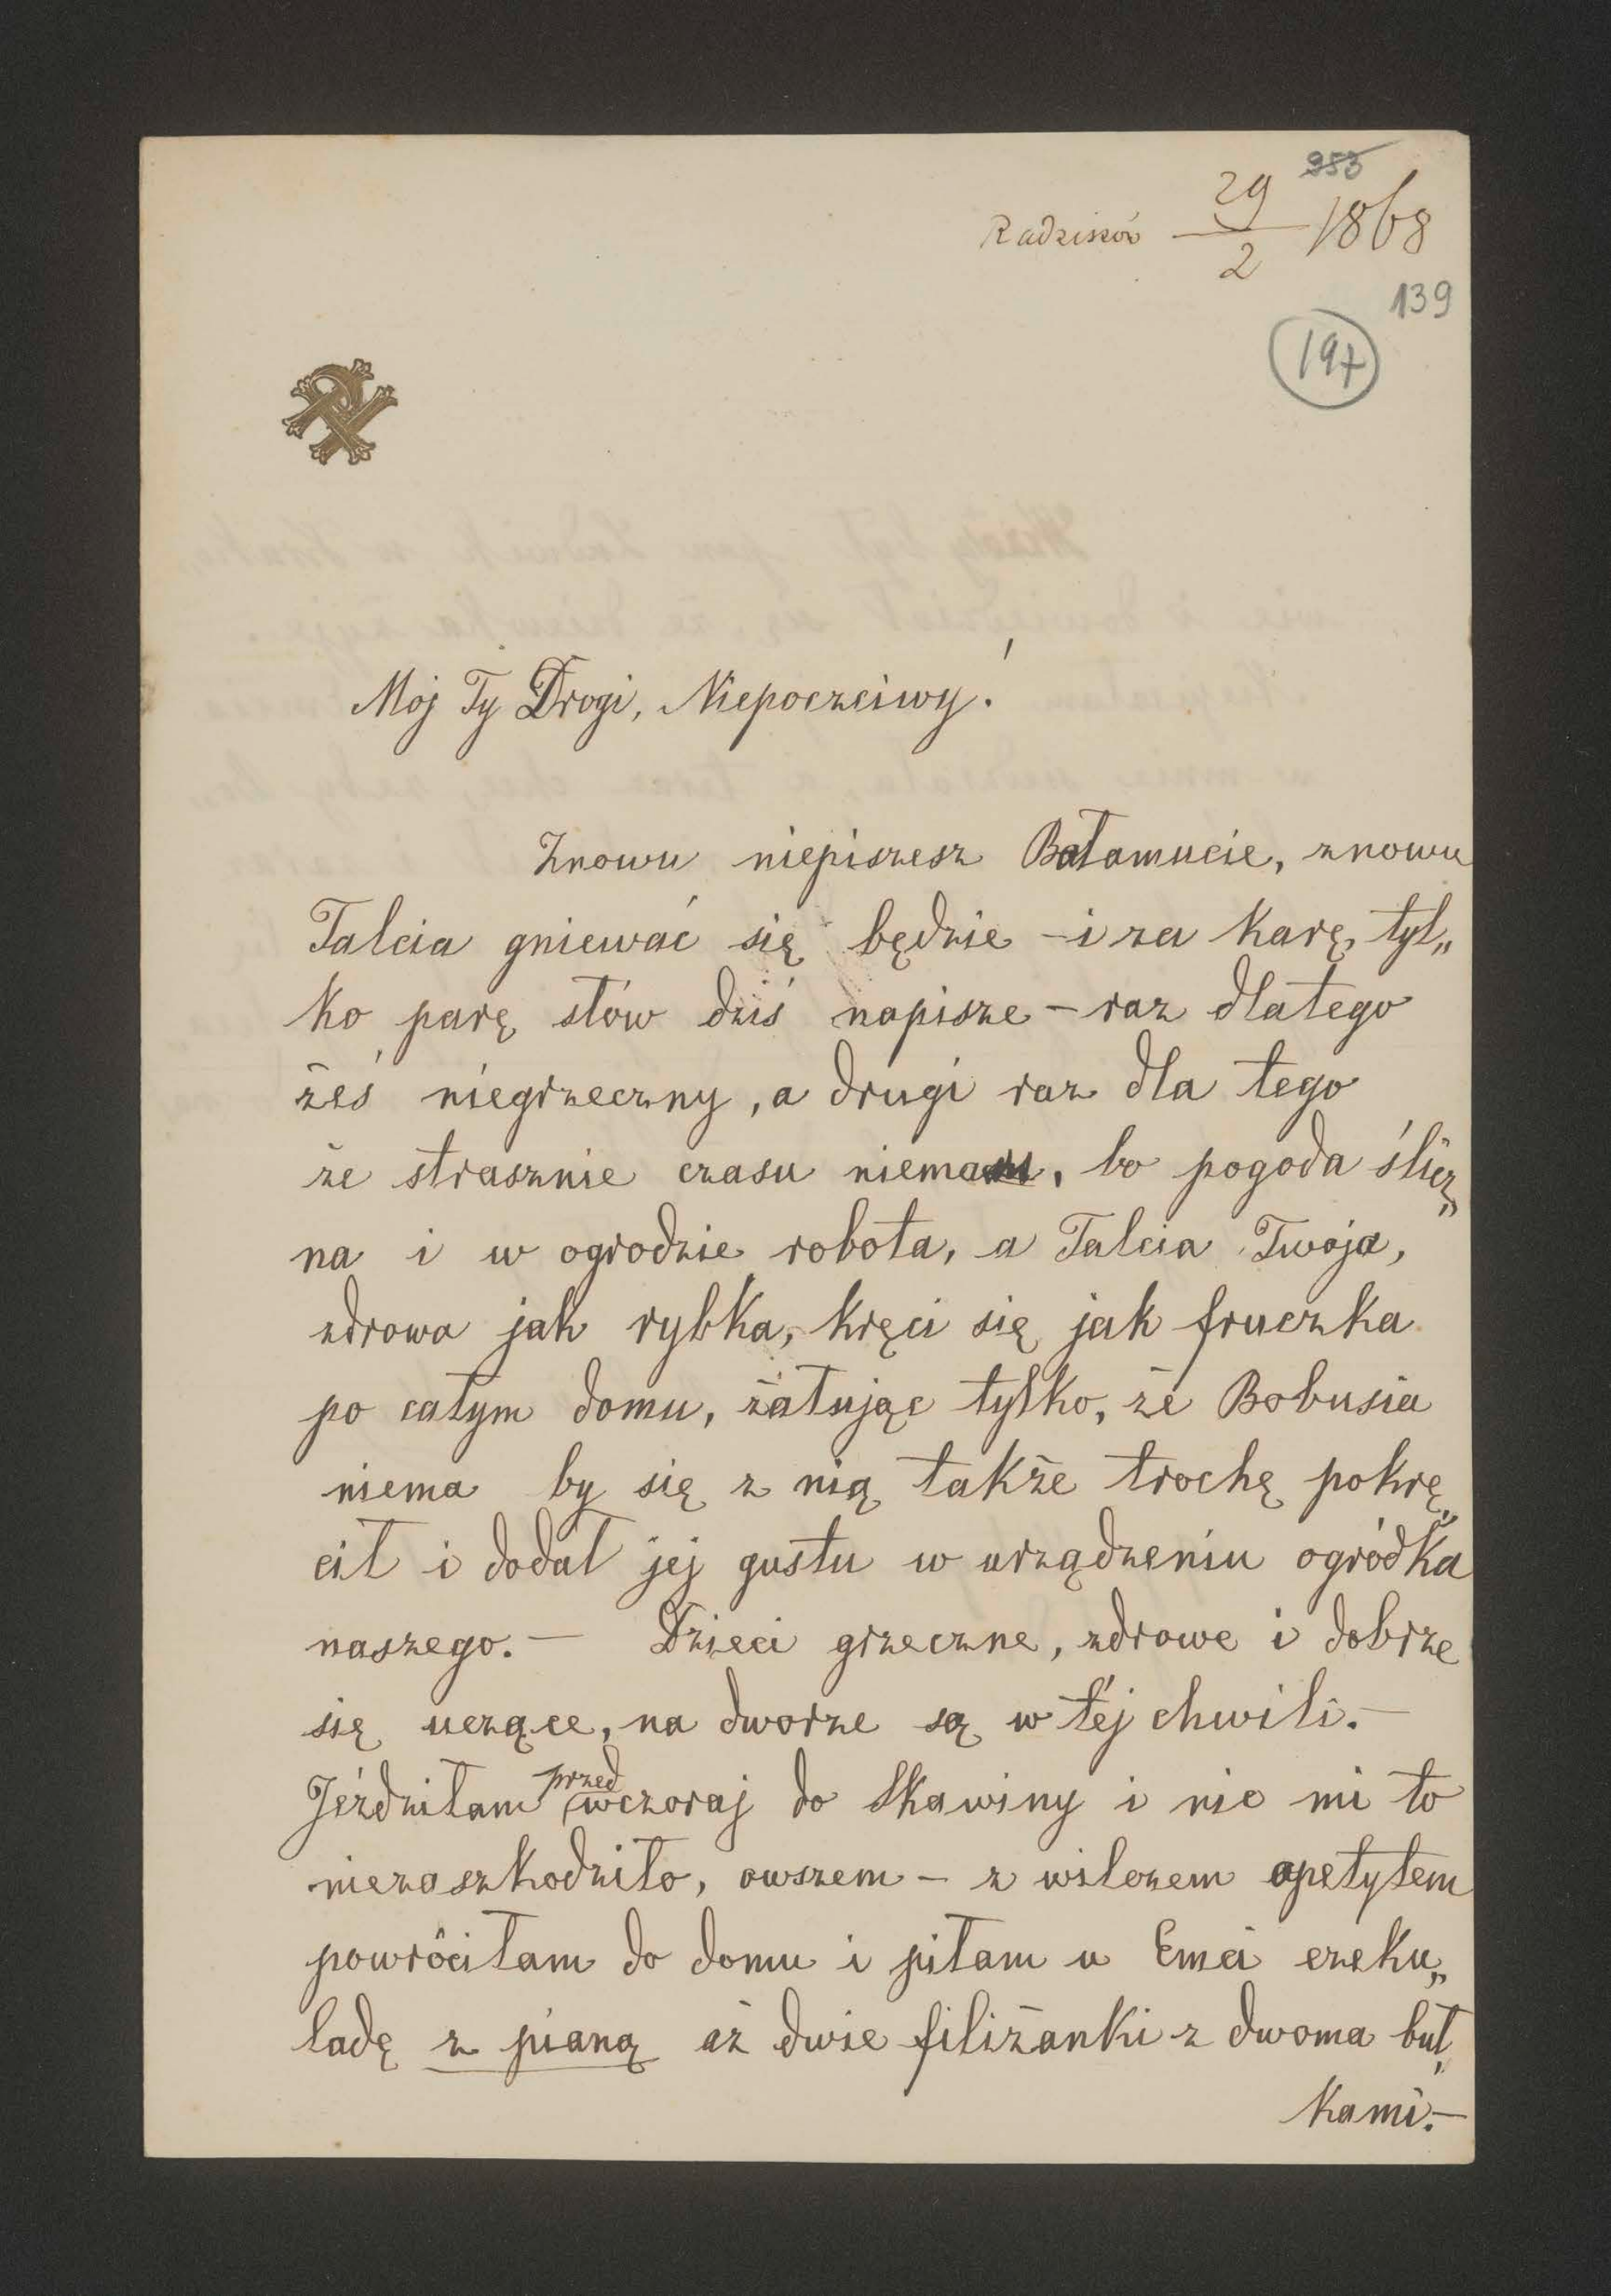 953
Radziszów 29/2 1868
139
197
Mój Ty Drogi, Niepoczciwy!
Znowu niepiszesz Bałamucie, znowu
Talcia gniewać się będzie – i za karę tyl„
ko parę słów dziś napisze – raz dlatego
żeś niegrzeczny, a drugi raz dla tego
że strasznie czasu niema, bo pogoda ślicz„
na i w ogrodzie robota, a Talcia Twoja,
zdrowa jak rybka, kręci się jak fruczka
po całym domu, żałując tylko, że Bobusia
niema by się z nią także trochę pokrę„
cił i dodał jej gustu w urządzeniu ogródka
naszego. – Dzieci grzeczne, zdrowe i dobrze
się uczące, na dworze są w téj chwili. –
Jéździłam przedwczoraj do Skawiny i nic mi to
niezaszkodziło, owszem – z wilczem apetytem
powróciłam do domu i piłam u Emci czeku„
ladę z pianą aż dwie filiżanki z dwoma buł„
kami. –